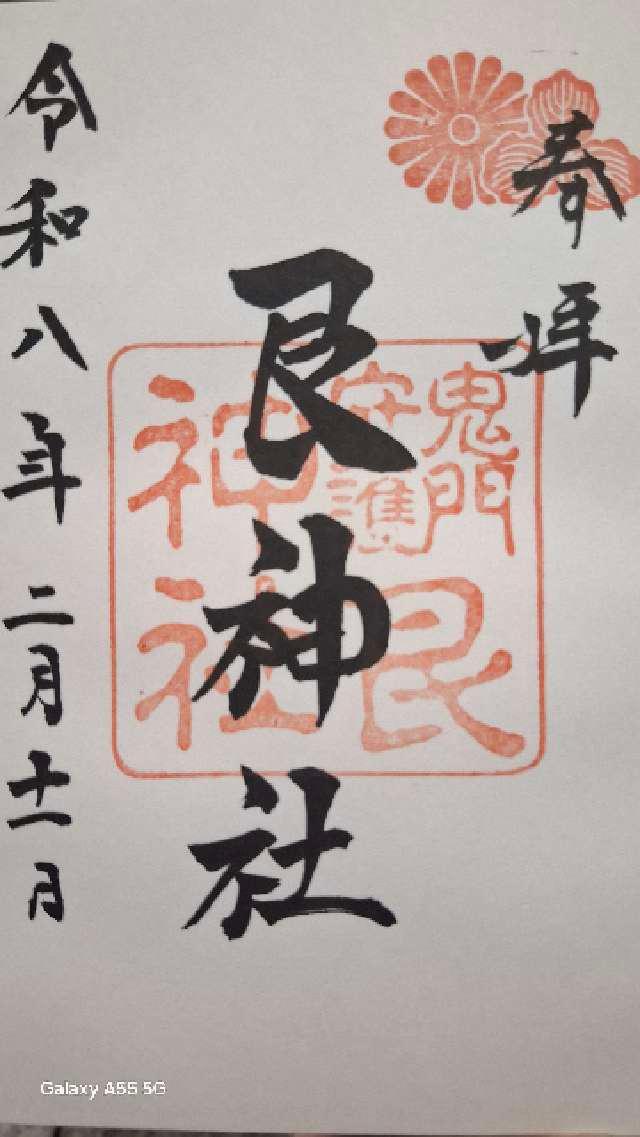 奉拝
鬼門
守護
艮
神社
艮神社
令和八年二月十一日
Galaxy A55 5G